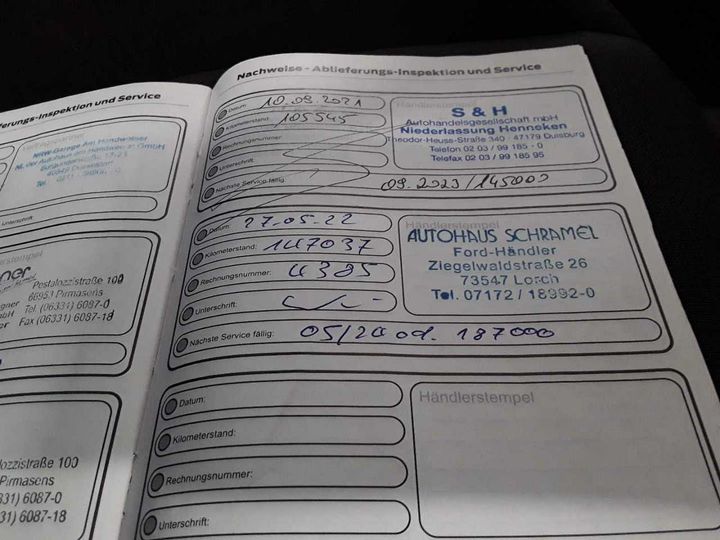 erungs-Inspektion und Service
NRW-Garage Am Handweiser
Unterschrift
Händlerstempel
ner
Postalozzistraße 100
66953 Pirmasens
Tel. (06331) 6087-0
Fax (06331) 6087-18
lozzistraße 100
Pirmasens
331) 6087-0
31) 6087-18
Nachweise - Ablieferungs-Inspektion und Service
Datum: 10.09.2021
Kilometerstand: 105545
Rechnungsnummer:
Unterschrift:
Nächste Service fällig: 09.2023/145000
Händlerstempel
S & H
Autohandelsgesellschaft mbH
Niederlassung Henneken
Theodor-Heuss-Straße 340 · 47179 Duisburg
Telefon 02 03 / 99 185 - 0
Telefax 02 03 / 99 185 95
Datum: 27.05.22
Kilometerstand: 147037
Rechnungsnummer: 4385
Unterschrift:
Nächste Service fällig: 05/24 od. 187000
Händlerstempel
AUTOHAUS SCHRAMEL
Ford-Händler
Ziegelwaldstraße 26
73547 Lorch
Tel. 07172 / 18992-0
Datum:
Kilometerstand:
Rechnungsnummer:
Unterschrift:
Händlerstempel